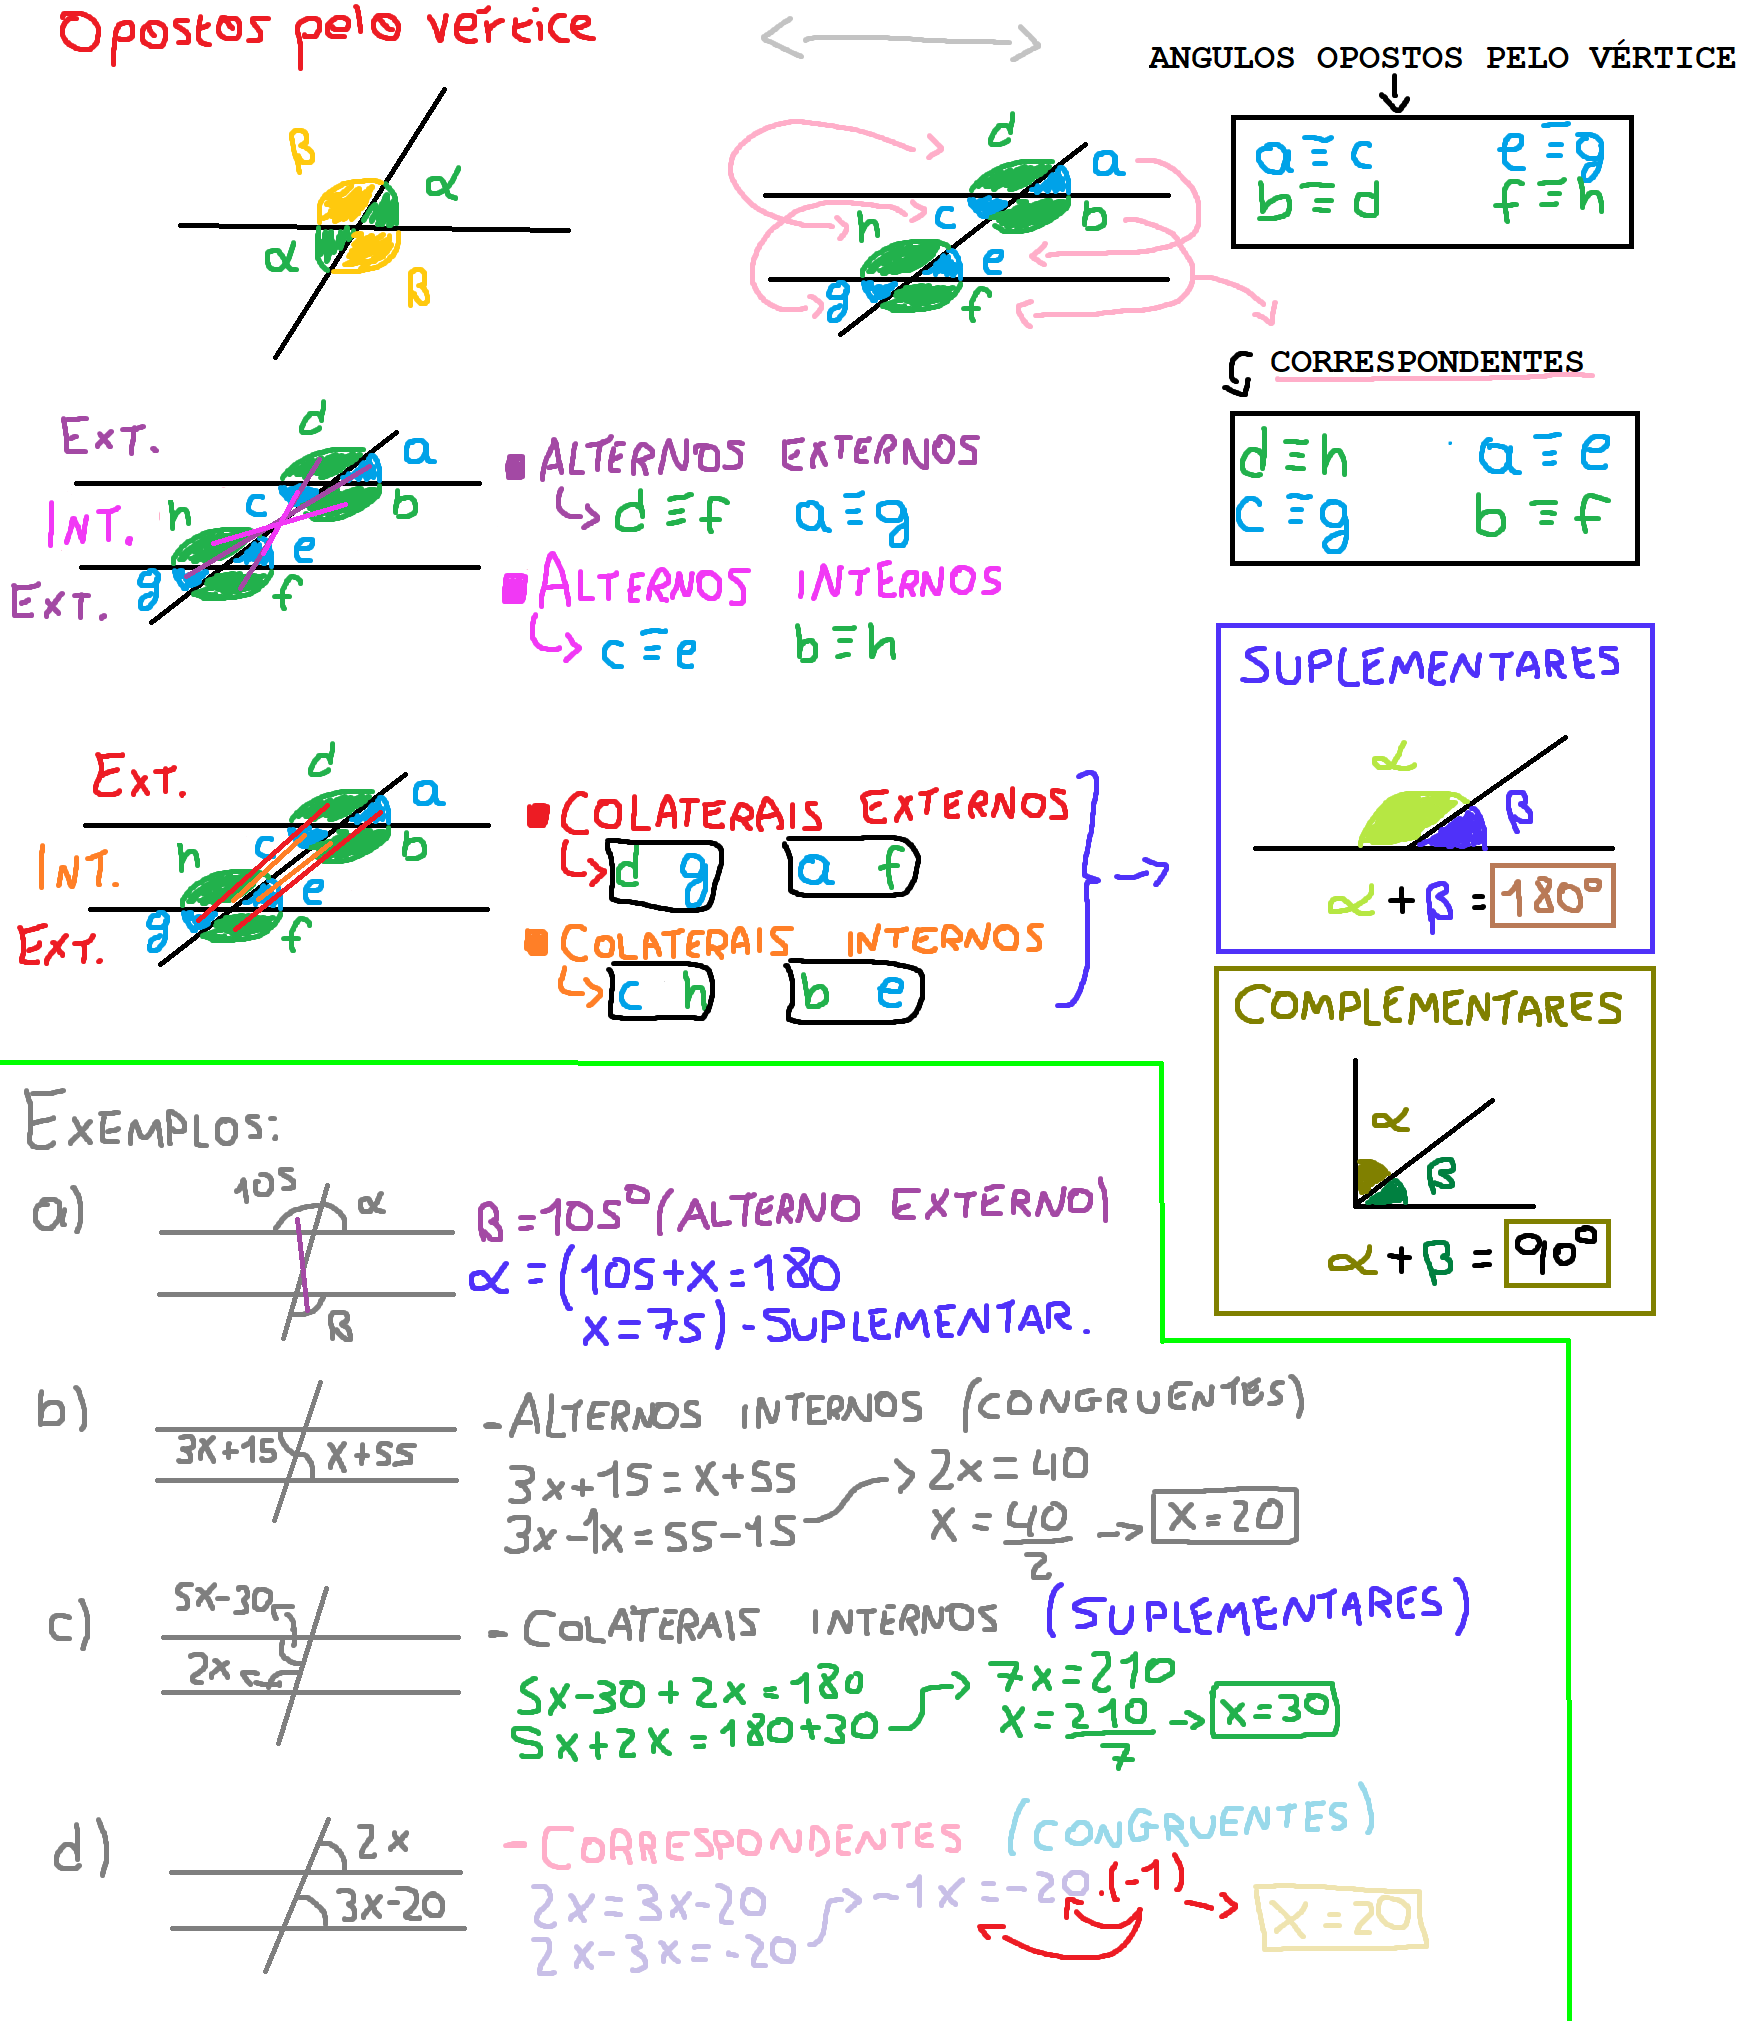 Opostos pelo vértice
β
α
α
β
d
a
c
b
h
e
g
f
ANGULOS OPOSTOS PELO VÉRTICE
a ≡ c e ≡ g
b ≡ d f ≡ h
CORRESPONDENTES
d ≡ h a ≡ e
c ≡ g b ≡ f
EXT.
INT.
EXT.
d
a
c
b
h
e
g
f
ALTERNOS EXTERNOS
d ≡ f a ≡ g
ALTERNOS INTERNOS
c ≡ e b ≡ h
EXT.
INT.
EXT.
d
a
c
b
h
e
g
f
COLATERAIS EXTERNOS
d g a f
COLATERAIS INTERNOS
c h b e
SUPLEMENTARES
α
β
α + β = 180°
COMPLEMENTARES
α
β
α + β = 90°
EXEMPLOS:
a)
105
α
β
β = 105° (ALTERNO EXTERNO)
α = (105+x=180
x=75) - SUPLEMENTAR.
b)
3x+15
x+55
- ALTERNOS INTERNOS (CONGRUENTES)
3x+15 = x+55
3x-1x = 55-15
2x = 40
x = 40/2
x = 20
c)
5x-30
2x
- COLATERAIS INTERNOS (SUPLEMENTARES)
5x-30 + 2x = 180
5x+2x = 180+30
7x = 210
x = 210/7
x = 30
d)
2x
3x-20
- CORRESPONDENTES (CONGRUENTES)
2x = 3x-20
2x-3x = -20
-1x = -20 .(-1)
x = 20